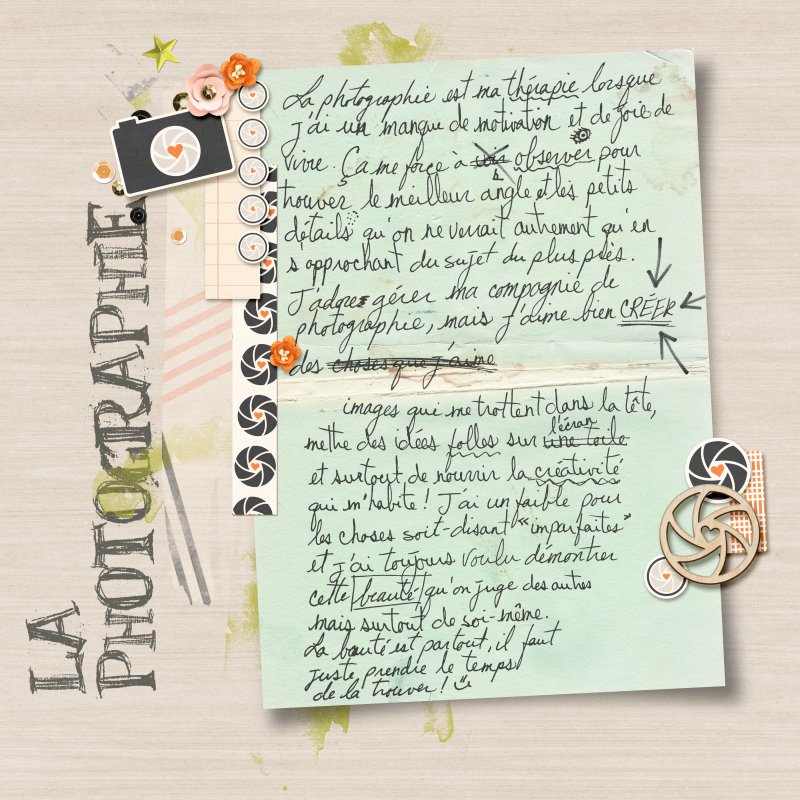 LA
PHOTOGRAPHIE
La photographie est ma thérapie lorsque
j'ai un manque de motivation et de joie de
vivre. Ça me force à observer pour
trouver le meilleur angle et les petits
détails qu'on ne verrait autrement qu'en
s'approchant du sujet du plus près.
J'adore gérer ma compagnie de
photographie, mais j'aime bien CRÉER
des choses que j'aime
images qui me trottent dans la tête,
l'écran
mettre des idées folles sur une toile
et surtout de nourrir la créativité
qui m'habite! J'ai un faible pour
les choses soit-disant "imparfaites"
et j'ai toujours voulu démontrer
cette beauté qu'on juge des autres
mais surtout de soi-même.
La beauté est partout, il faut
juste prendre le temps
de la trouver!